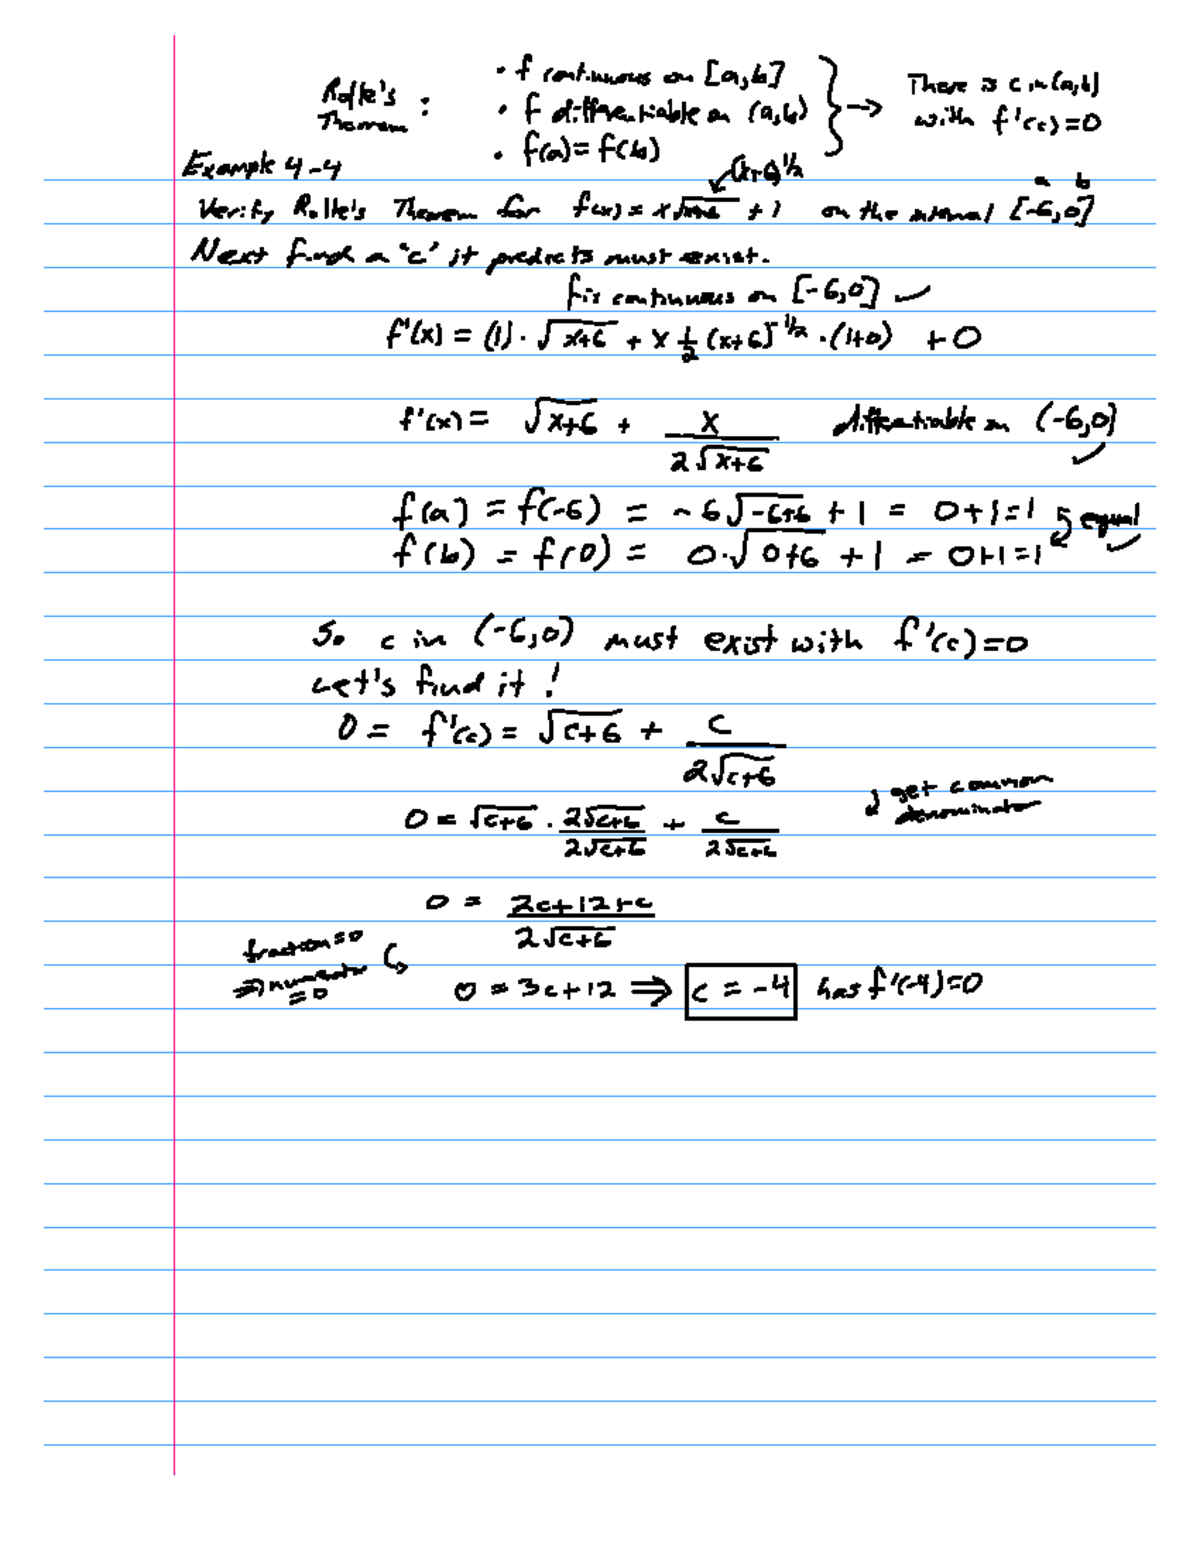 Rolle's Theorem : • f continuous on [a,b]
• f differentiable on (a,b)
• f(a) = f(b)
} → There is c in (a,b) with f'(c) = 0
Example 4-4
(x+6)^1/2
a b
Verify Rolle's Theorem for f(x) = x√x+6 + 1 on the interval [-6,0]
Next find a "c" it predicts must exist.
f is continuous on [-6,0] ✓
f'(x) = (1)·√x+6 + x 1/2 (x+6)^-1/2 ·(1+0) + 0
f'(x) = √x+6 + x/(2√x+6) differentiable on (-6,0) ✓
f(a) = f(-6) = -6√-6+6 + 1 = 0+1=1
f(b) = f(0) = 0·√0+6 + 1 = 0+1=1
equal ✓
So c in (-6,0) must exist with f'(c)=0
Let's find it!
0 = f'(c) = √c+6 + c/(2√c+6)
get common denominator
0 = √c+6 · (2√c+6)/(2√c+6) + c/(2√c+6)
0 = (2c+12+c)/(2√c+6)
fraction=0
⇒ numerator =0
0 = 3c+12 ⇒ c = -4 has f'(-4)=0